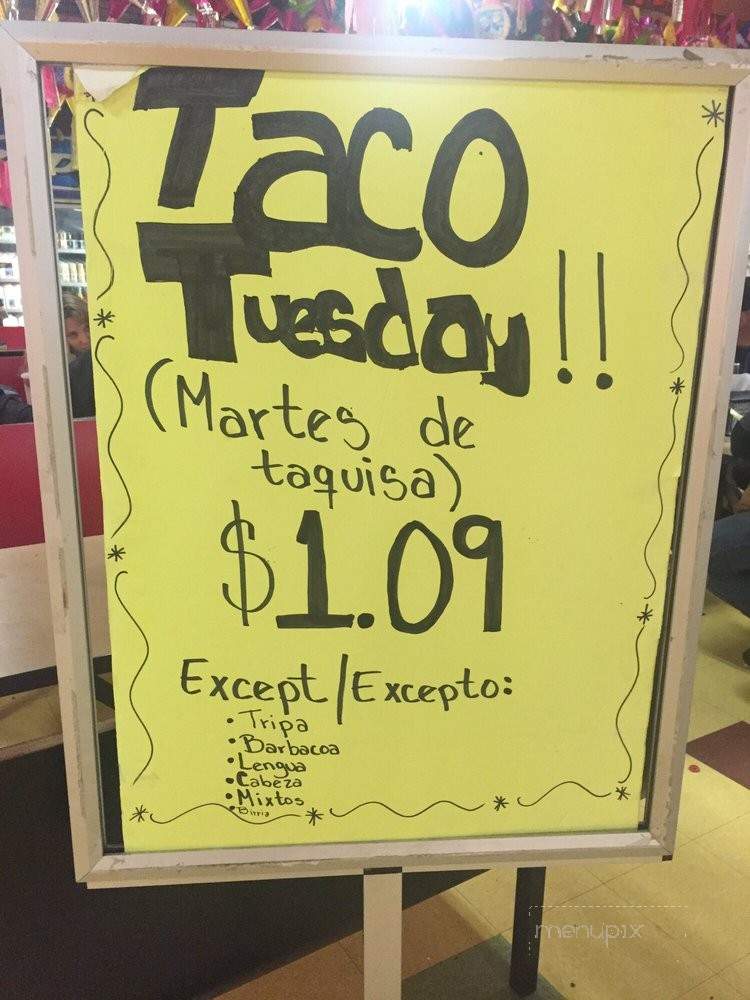 Taco
Tuesday!!
(Martes de
taquisa)
$1.09
Except/Excepto:
• Tripa
• Barbacoa
• Lengua
• Cabeza
• Mixtos
• Birria
menupix